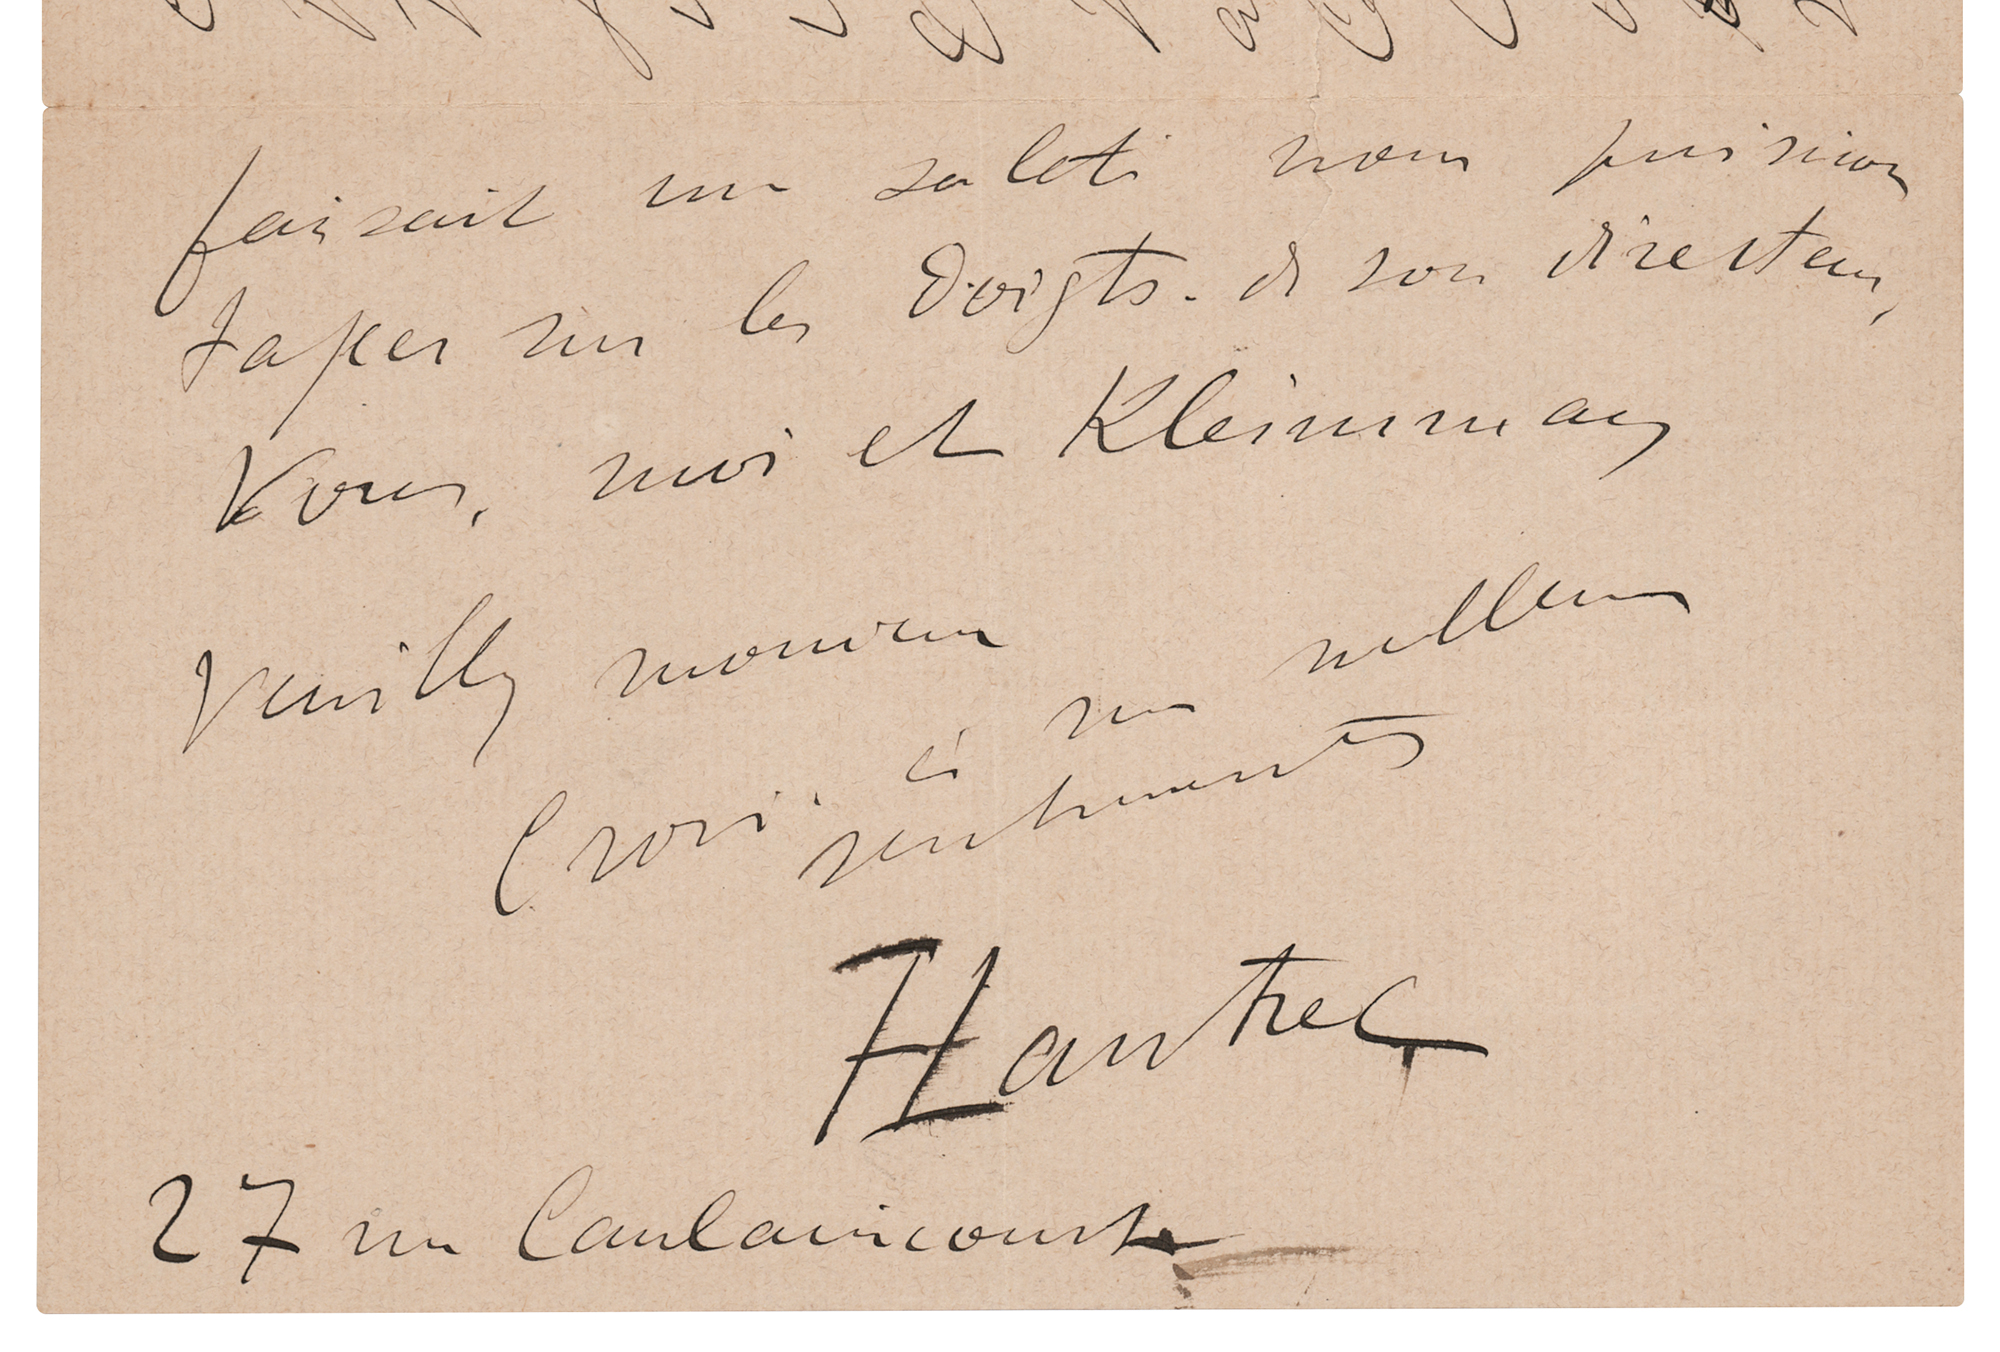 faisait une saleté nous puissions
taper sur les doigts de son directeur,
Vous, moi et Kleinmann
Veuillez monsieur
croire à mes meilleurs
sentiments
HLautrec
27 rue Caulaincourt